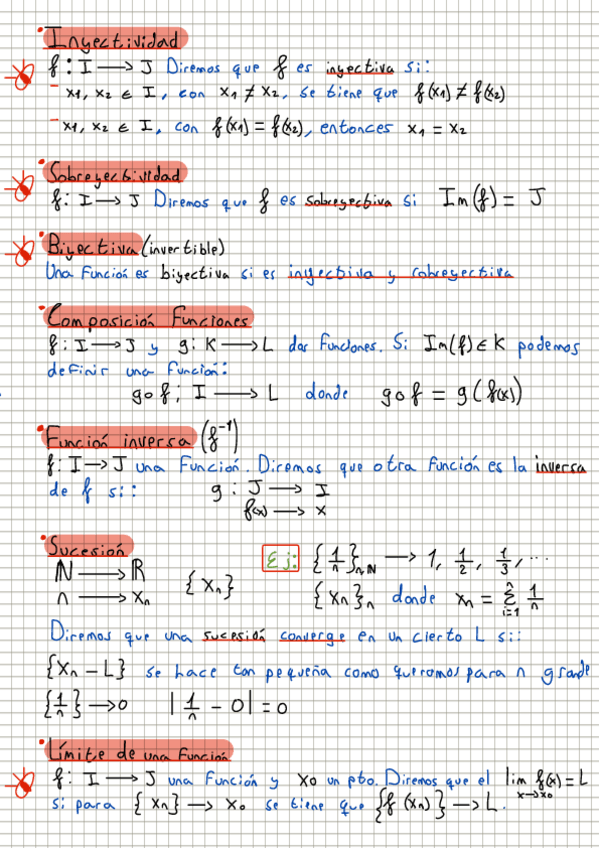 Inyectividad
f: I → J Diremos que f es inyectiva si:
- x1, x2 ∈ I, con x1 ≠ x2, se tiene que f(x1) ≠ f(x2)
- x1, x2 ∈ I, con f(x1) = f(x2), entonces x1 = x2
Sobreyectividad
f: I → J Diremos que f es sobreyectiva si Im(f) = J
Biyectiva (invertible)
Una función es biyectiva si es inyectiva y sobreyectiva
Composición Funciones
f: I → J y g: K → L dos funciones. Si Im(f) ∈ K podemos
definir una función:
g o f; I → L donde g o f = g(f(x))
Función inversa (f⁻¹)
f: I → J una función. Diremos que otra función es la inversa
de f si: g: J → I
f(x) → x
Sucesión
ℕ → ℝ
n → xn
{xn}
Ej: {1/n}n∈ℕ → 1, 1/2, 1/3, ...
{xn}n donde xn = Σ(i=1, n) 1/n
Diremos que una sucesión converge en un cierto L si:
{xn - L} se hace tan pequeña como queramos para n grande
{1/n} → 0 |1/n - 0| = 0
Límite de una función
f: I → J una función y x0 un pto. Diremos que el lim x→x0 f(x) = L
si para {xn} → x0 se tiene que {f(xn)} → L.